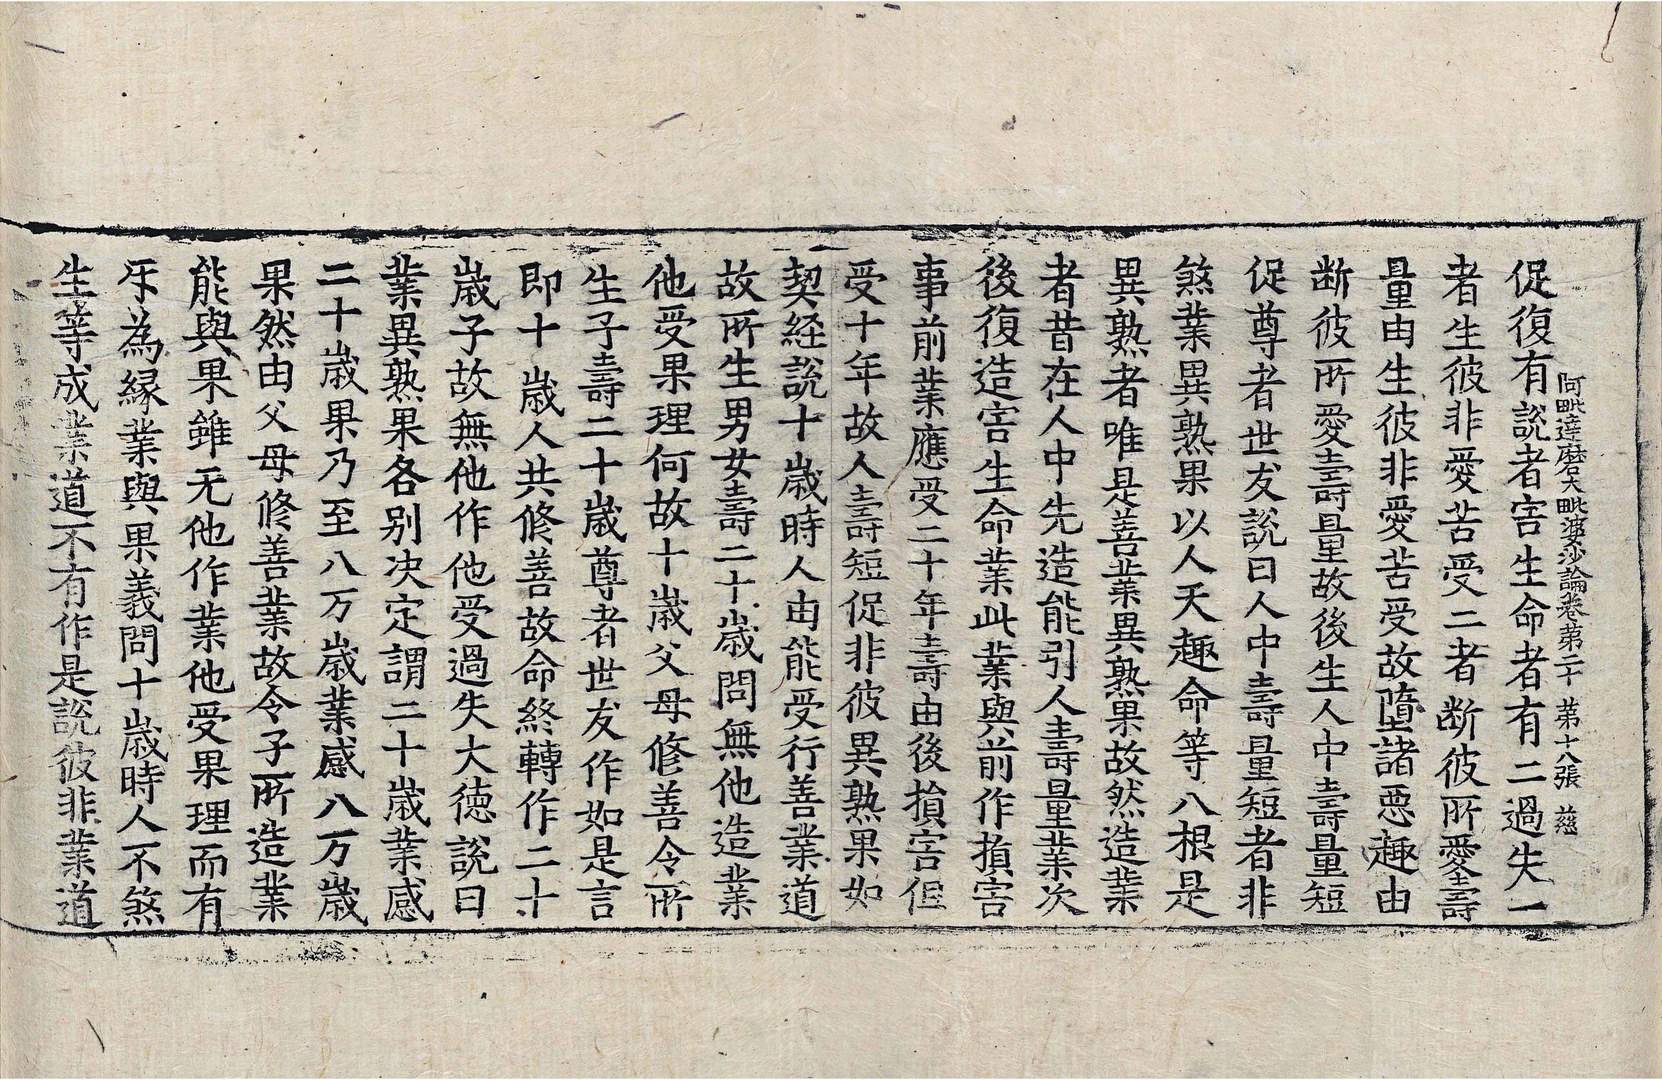 阿毗達磨大毗婆沙論卷第二十　第十八張　慈
促復有說者害生命者有二過失一
者生彼非愛苦受二者断彼所愛壽
量由生彼非愛苦受故墮諸惡趣由
断彼所愛壽量故後生人中壽量短
促尊者世友說曰人中壽量短者非
煞業異熟果以人天趣命等八根是
異熟者唯是善業異熟果故然造業
者昔在人中先造能引人壽量業次
後復造害生命業此業與前作損害
事前業應受二十年壽由後損害但
受十年故人壽短促非彼異熟果如
契經說十歲時人由能受行善業道
故所生男女壽二十歲問無他造業
他受果理何故十歲父母修善令所
生子壽二十歲尊者世友作如是言
即十歲人共修善故命終轉作二十
歲子故無他作他受過失大德說曰
業異熟果各别决定謂二十歲業感
二十歲果乃至八万歲業感八万歲
果然由父母修善業故令子所造業
能與果雖无他作業他受果理而有
㸦為緣業與果義問十歲時人不煞
生等成業道不有作是說彼非業道